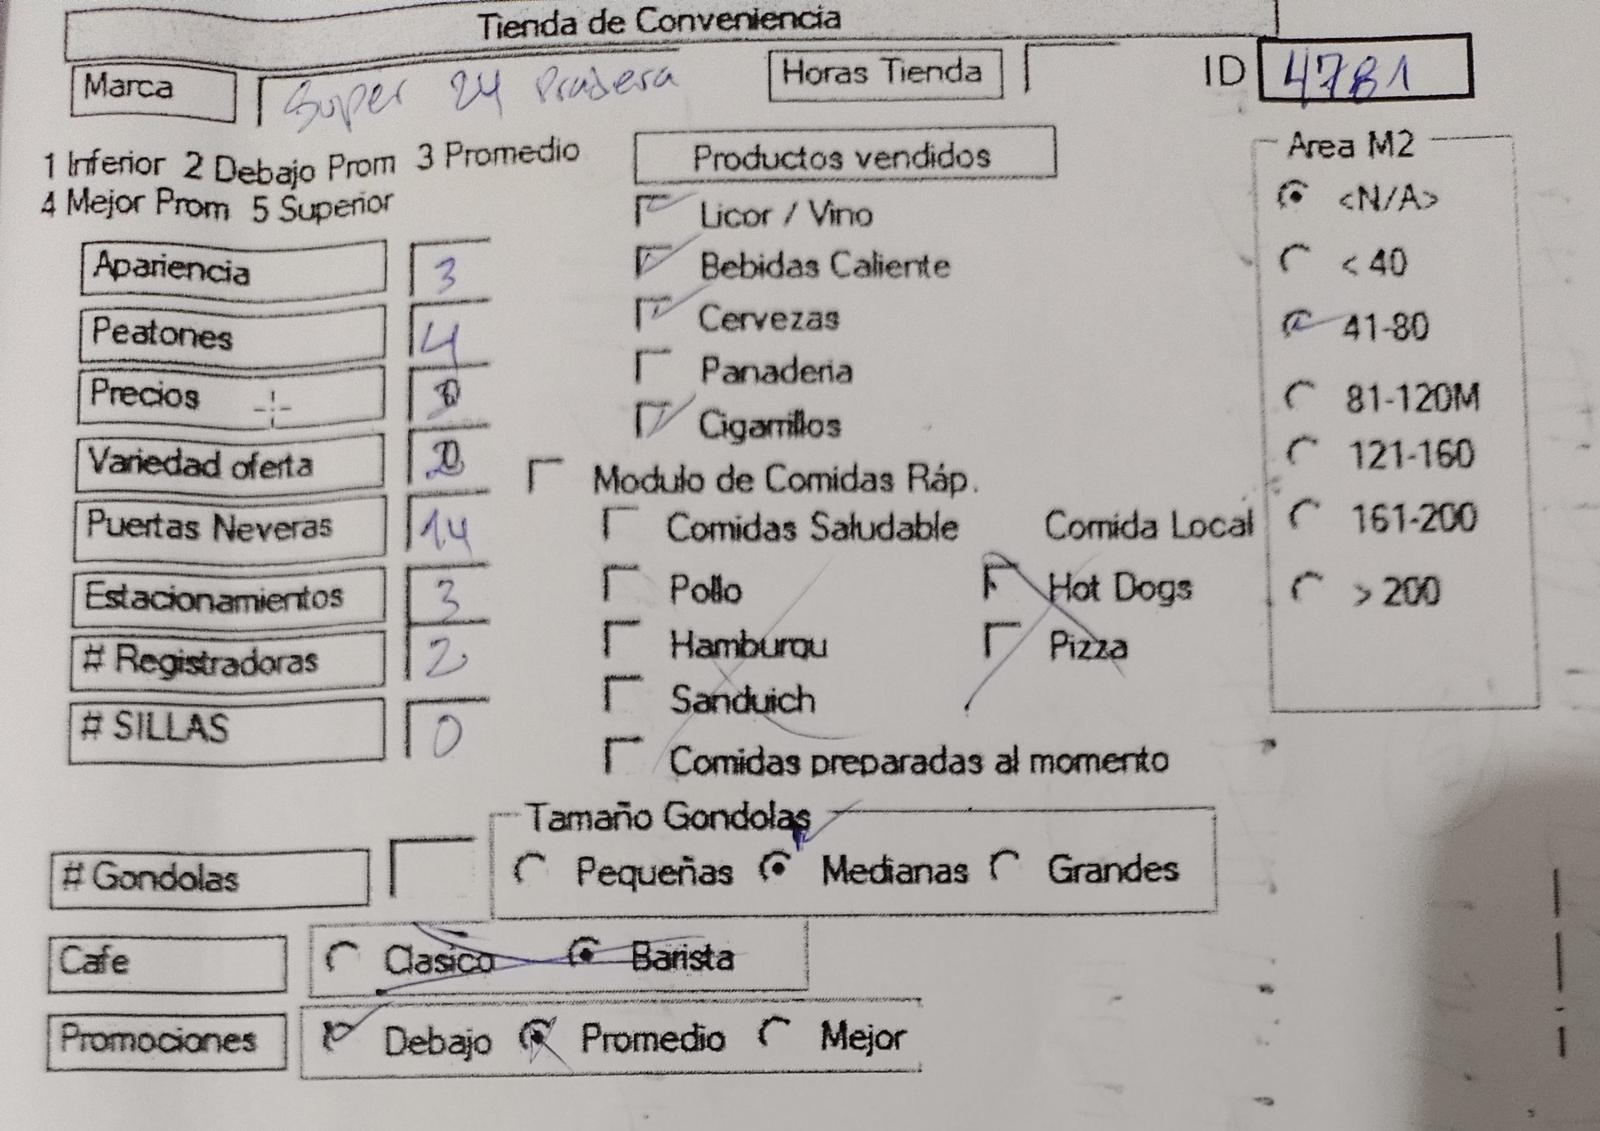 Tienda de Conveniencia
Marca Super 24 Pradera Horas Tienda ID 4781
1 Inferior 2 Debajo Prom 3 Promedio
4 Mejor Prom 5 Superior
Productos vendidos
Licor / Vino
Bebidas Caliente
Cervezas
Panaderia
Cigarrillos
Area M2
<N/A>
< 40
41-80
81-120M
121-160
161-200
> 200
Apariencia 3
Peatones 4
Precios
Variedad oferta
Puertas Neveras 14
Estacionamientos 3
# Registradoras 2
# SILLAS 0
Modulo de Comidas Ráp.
Comidas Saludable Comida Local
Pollo Hot Dogs
Hamburgu Pizza
Sanduich
Comidas preparadas al momento
Tamaño Gondolas
# Gondolas Pequeñas Medianas Grandes
Cafe Clasico Barista
Promociones Debajo Promedio Mejor